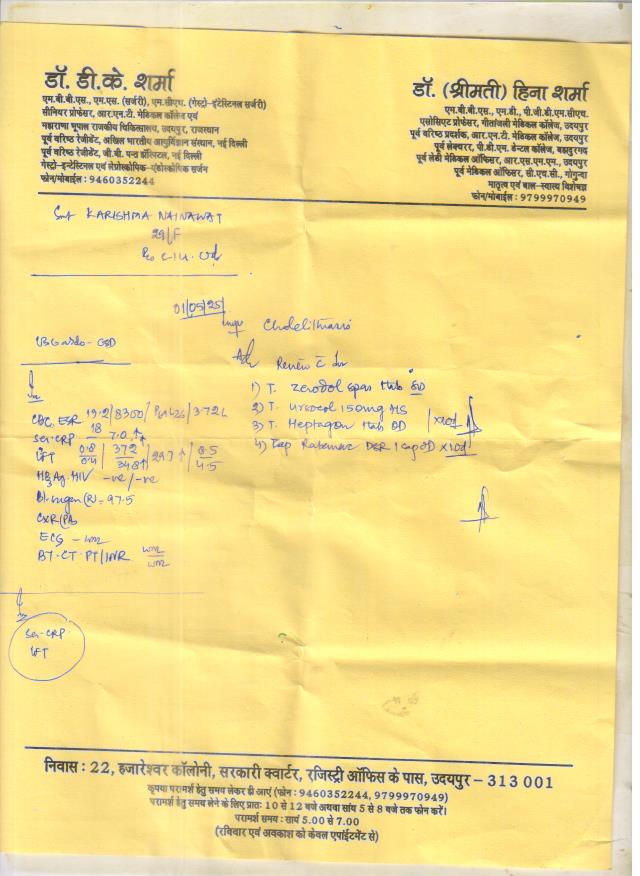 डॉ. डी.के. शर्मा
एम.बी.बी.एस., एम.एस. (सर्जरी), एम.सीएच. (गेस्ट्रो-इंटेस्टिनल सर्जरी)
सीनियर प्रोफेसर, आर.एन.टी. मेडिकल कॉलेज एवं
महाराणा भूपाल राजकीय चिकित्सालय, उदयपुर, राजस्थान
पूर्व वरिष्ठ रेजीडेंट, अखिल भारतीय आयुर्विज्ञान संस्थान, नई दिल्ली
पूर्व वरिष्ठ रेजीडेंट, जी.बी. पन्त हॉस्पिटल, नई दिल्ली
गेस्ट्रो-इन्टेस्टिनल एवं लेप्रोस्कोपिक-एंडोस्कोपिक सर्जन
फोन/मोबाईल : 9460352244
डॉ. (श्रीमती) हिना शर्मा
एम.बी.बी.एस., एम.डी., पी.जी.डी.एम.सीएच.
एसोसिएट प्रोफेसर, गीतांजली मेडिकल कॉलेज, उदयपुर
पूर्व वरिष्ठ प्रदर्शक, आर.एन.टी. मेडिकल कॉलेज, उदयपुर
पूर्व लेक्चरर, पी.डी.एम. डेन्टल कॉलेज, बहादुरगढ़
पूर्व लेडी मेडिकल ऑफिसर, आर.एस.एम.एम., उदयपुर
पूर्व मेडिकल ऑफिसर, सी.एच.सी., गोगुन्दा
मातृत्व एवं बाल-स्वास्थ्य विशेषज्ञ
फोन/मोबाईल : 9799970949
Smt KARISHMA NAINAWAT
29/F
01/05/25
Cholelithiasis
USG abdo - GSD
Adv Review
1) T. Zerodol spas tab BD
2) T. Ursocol 150mg HS
3) T. Heptagon tab BD x10d
4) Cap Rabemac DSR 1 cap OD x10d
CBC. ESR 13.2/8300/ /3.72L
18
Ser. CRP 7.0 ↑↑
LFT 0.8/0.4 372/348↑ 297↑ 8.5/4.5
HBsAg. HIV -ve/-ve
Bl. sugar (R) = 97.5
CXR (PA)
ECG - wnl
BT. CT. PT/INR wnl/wnl
Ser. CRP
LFT
निवास : 22, हजारेश्वर कॉलोनी, सरकारी क्वार्टर, रजिस्ट्री ऑफिस के पास, उदयपुर – 313 001
कृपया परामर्श हेतु समय लेकर ही आएं (फोन : 9460352244, 9799970949)
परामर्श हेतु समय लेने के लिए प्रातः 10 से 12 बजे अथवा सांय 5 से 8 बजे तक फोन करें।
परामर्श समय : सायं 5.00 से 7.00
(रविवार एवं अवकाश को केवल एपाईंटमेंट से)